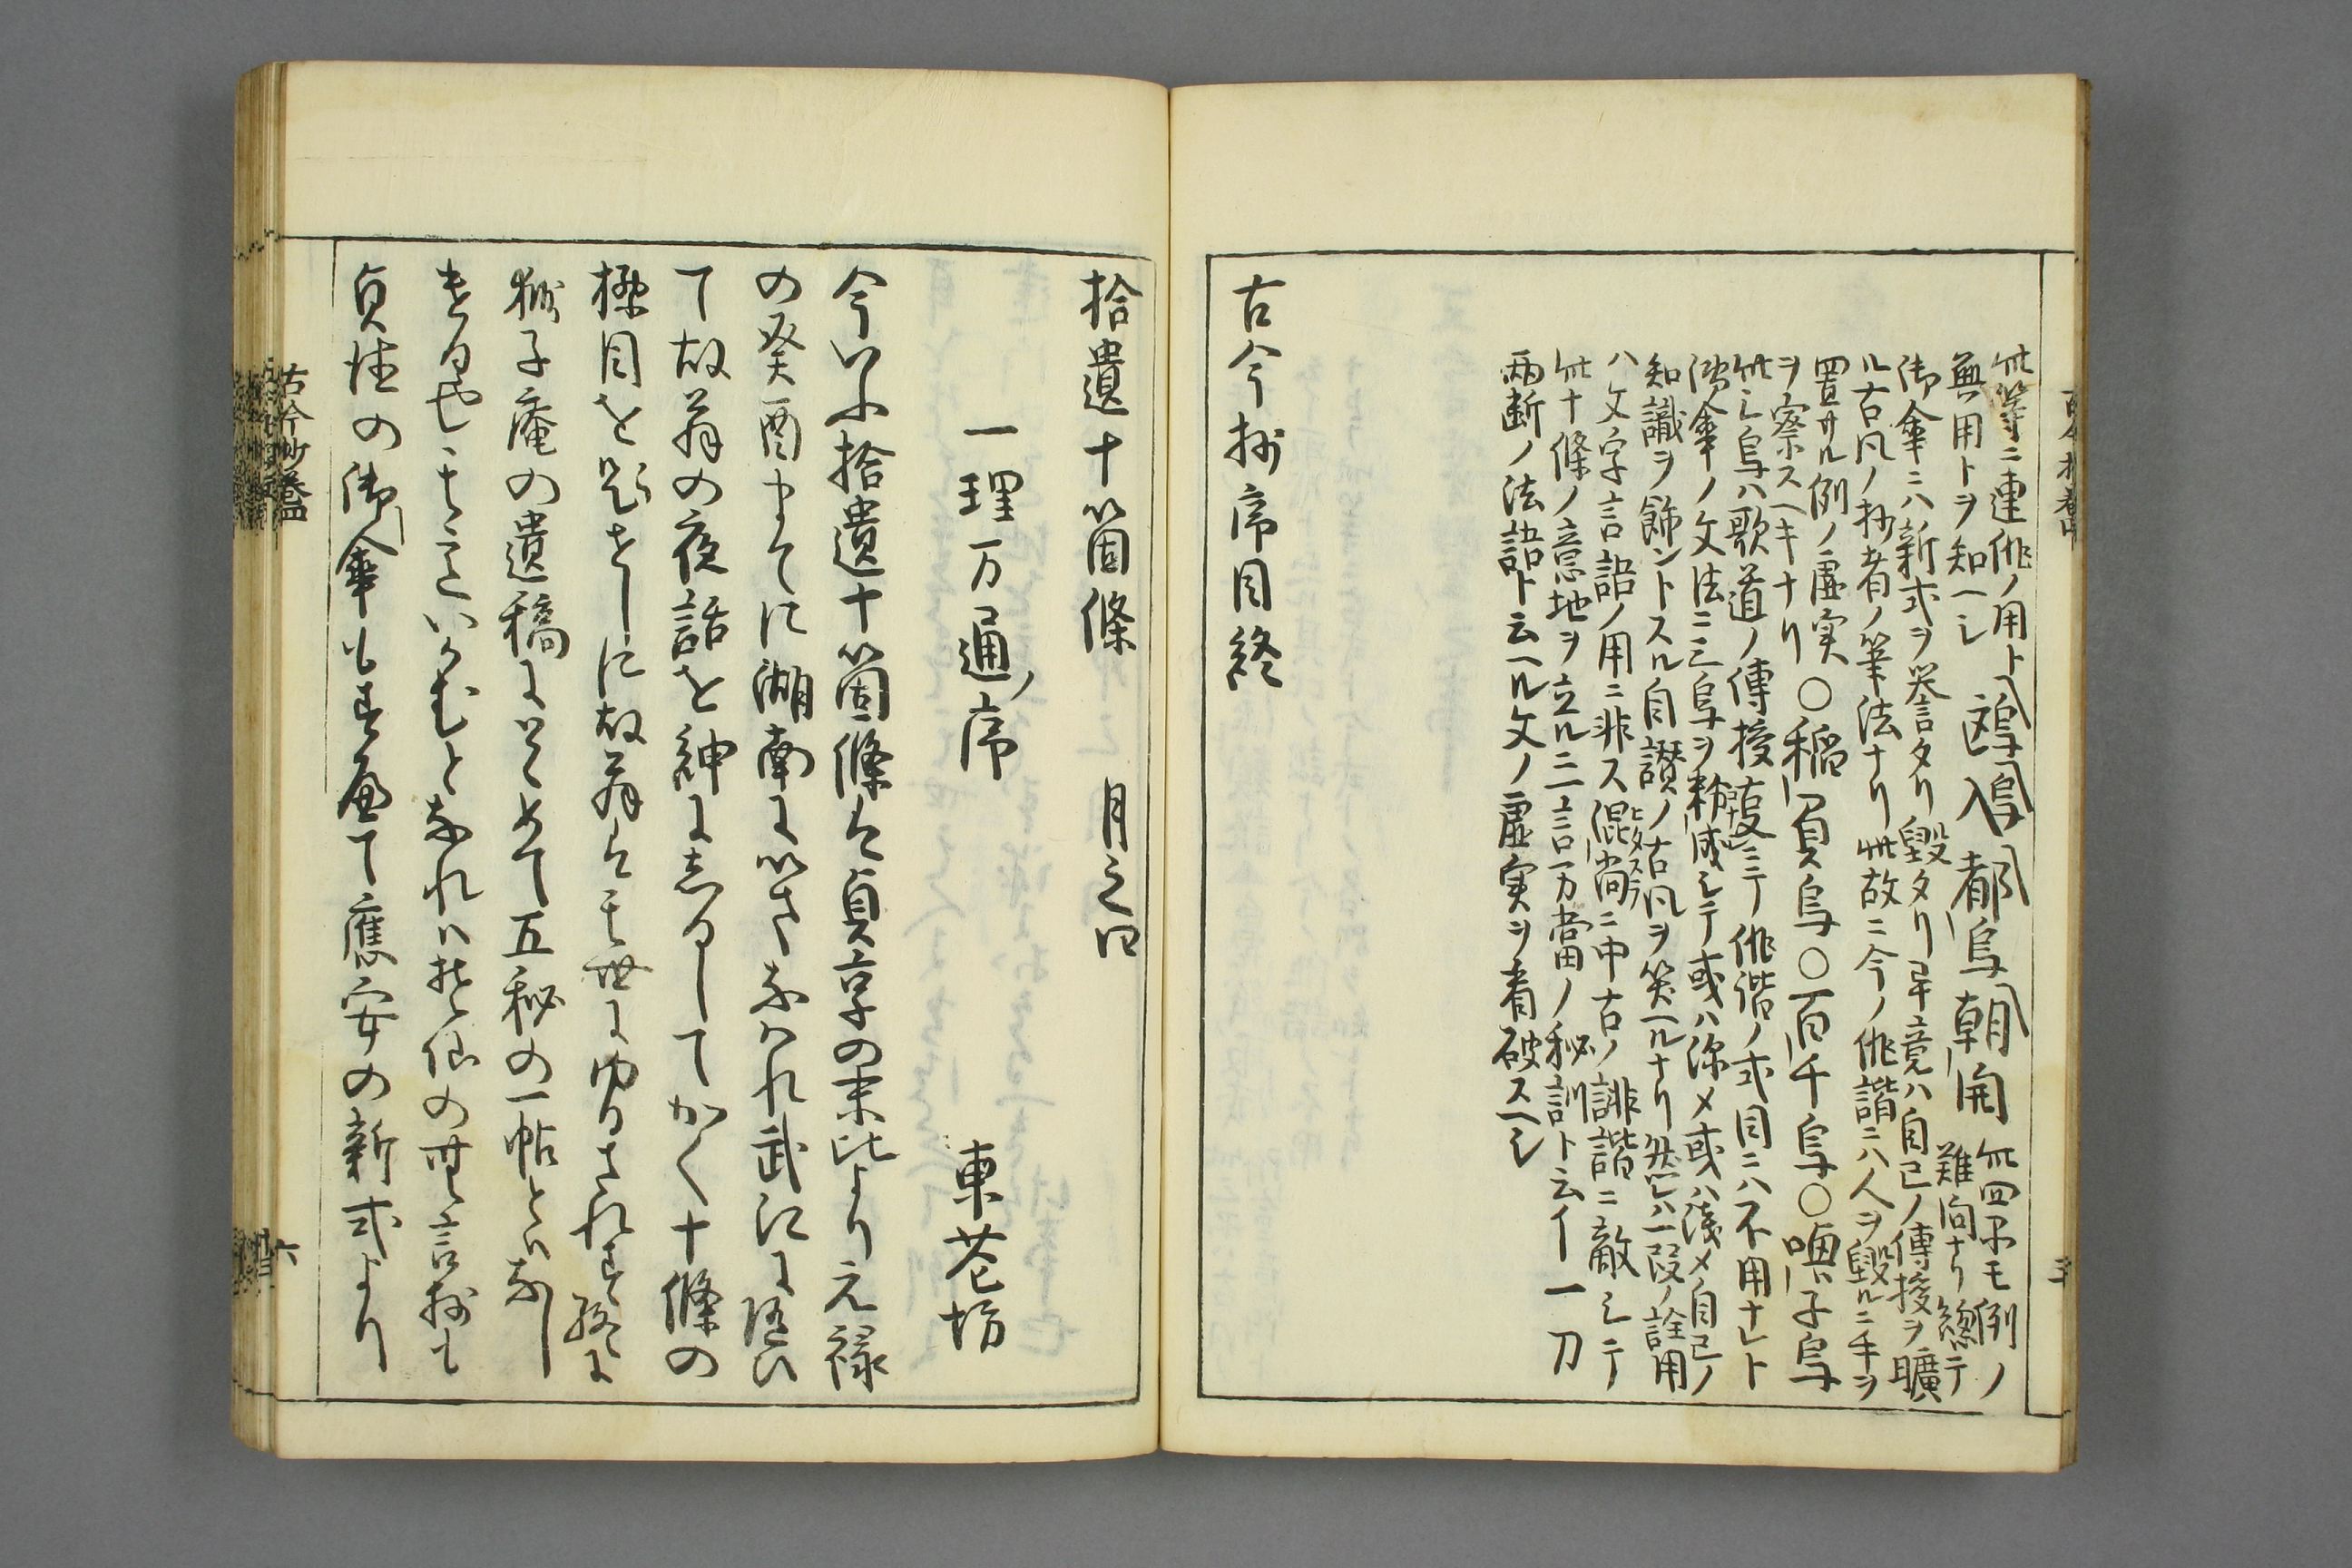 此等ニ連俳ノ用ト
無用トヲ知ヘシ
鴎鳥入都鳥朝
此四ケモ例ノ
難問ナリ總テ
御傘ニハ新式ヲ誉タリ毀タリ畢竟ハ自己ノ傳授ヲ曠
ル古凡ノ抄者ノ筆法ナリ此故ニ今ノ俳諧ニハ人ヲ毀ルニ手ヲ
置サル例ノ虚実
ヲ察スヘキナリ
〇稲負鳥〇百千鳥〇喚子鳥
此三鳥ハ歌道ノ傳授ニテ俳諧ノ式目ニハ不用ナレト
御傘ノ文法ニ三鳥ヲ粉成シテ或ハ深メ或ハ浅メ自己ノ
知識ヲ飾ントスル自讃ノ古凡ヲ笑ヘルナリ然レハ一段ノ詮用
ハ文字言語ノ用ニ非ス混尚ニ中古ノ誹諧ニ敵シテ
此十條ノ意地ヲ立ル二三言万當ノ秘訓ト云イ一刀
両断ノ法語ト云ヘル文ノ虚実ヲ看破スヘシ
古今抄序目終
拾遺十箇條 月之口
一理万通ノ序
東花坊
今いふ拾遺十箇條は貞享の末比より元禄
の癸酉まてに湖南にいさなはれ武江に随ひ
て故翁の夜話を紳にしるしてかく十條の
標目を題せしに故翁は世にゆるされす終に
獅子庵の遺稿にとゝめて五秘の一帖とはなし
ける也その言いかむとなれは其他の無言抄も
貞徳の御傘もすへて應安の新式より
古今抄巻四
六